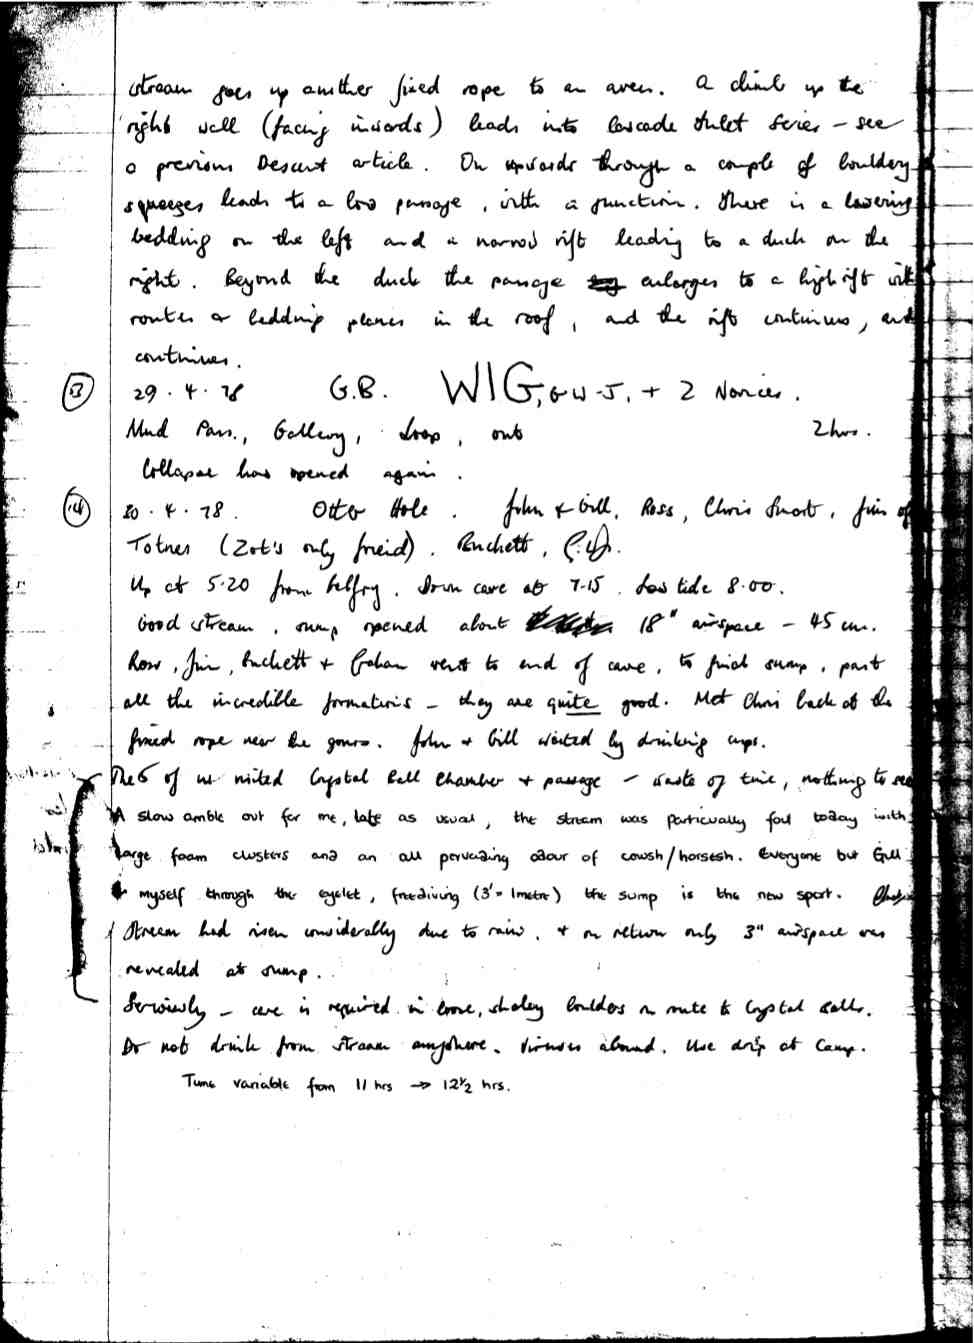 stream goes up another fixed rope to an aven. A climb up the
right wall (facing inwards) leads into Cascade Inlet Series - see
a previous Descent article. On upwards through a couple of bouldery
squeezes leads to a low passage, with a junction. There is a lowering
bedding on the left and a narrow rift leading to a duck on the
right. Beyond the duck the passage enlarges to a high rift with
routes or bedding planes in the roof, and the rift continues, and
continues.
(13) 29.4.78 G.B. WIG, G W-J, + 2 Novices.
Mud Pass., Gallery, Loop, out 2 hrs.
Collapse has opened again.
(14) 30.4.78. Otter Hole. John & Gill, Ross, Chris Smart, Jim of
Totnes (Zot's only freid). Buckett,
Up at 5.20 from Belfry. Down cave at 7.15. Low tide 8.00.
Good stream, sump opened about 18" airspace - 45 cm.
Ross, Jim, Buckett + Graham went to end of cave, to final sump, past
all the incredible formations - they are quite good. Met Chris back at the
fixed rope near the gours. John + Gill waited by drinking cups.
The 5 of us visited Crystal Ball Chamber + passage - waste of time, nothing to see
A slow amble out for me, late as usual, the stream was particually foul today with
large foam clusters and an all pervading odour of cowsh/horsesh. Everyone but Gill
& myself through the eyelet, freediving (3' = 1metre) the sump is the new sport.
Stream had risen considerally due to rain, + on return only 3" airspace was
revealed at sump.
Seriously - care is required in loose, shaley boulders en route to Crystal Balls.
Do not drink from stream anywhere. Viruses abound. Use drip at Camp.
Time variable from 11 hrs → 12½ hrs.